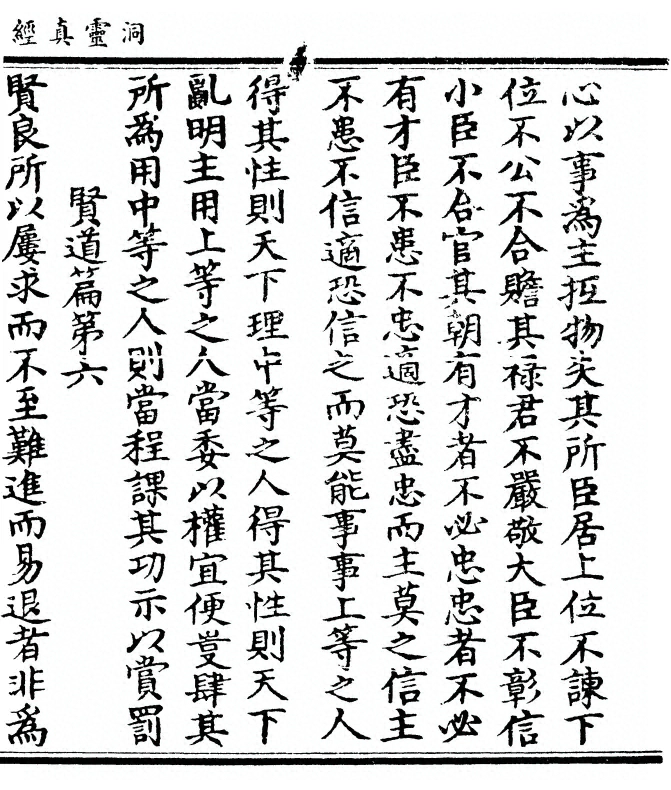 洞靈真經
心以事為主抂物失其所臣居上位不諫下
位不公不合贍其祿君不嚴敬大臣不彰信
小臣不合官其朝有才者不必忠忠者不必
有才臣不患不忠適恐盡忠而主莫之信主
不患不信適恐信之而莫能事事上等之人
得其性則天下理中等之人得其性則天下
亂明主用上等之人當委以權宜便㕝肆其
所為用中等之人則當程課其功示以賞罰
賢道篇第六
賢良所以屢求而不至難進而易退者非為